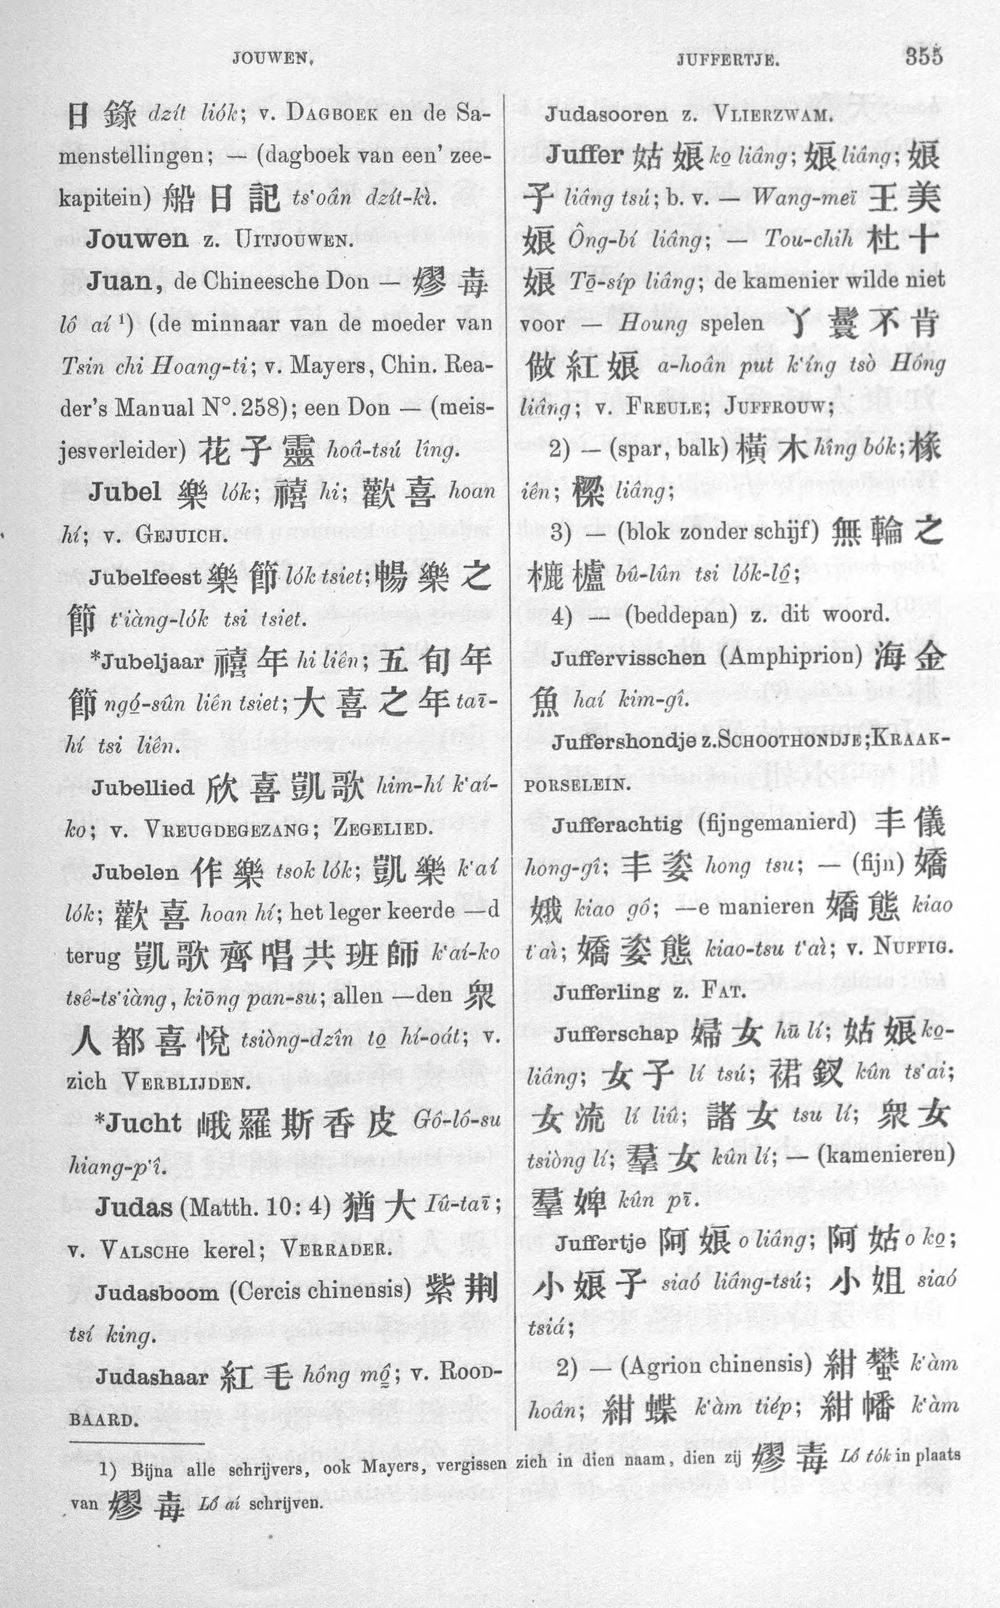 JOUWEN.
JUFFERTJE.
355
日錄 dzít liók; v. DAGBOEK en de Sa-
menstellingen; — (dagboek van een' zee-
kapitein) 船日記 ts'oân dzít-kì.
Jouwen z. UITJOUWEN.
Juan, de Chineesche Don — 嫪毐
lô aí ¹) (de minnaar van de moeder van
Tsin chi Hoang-ti; v. Mayers, Chin. Rea-
der's Manual N°. 258); een Don — (meis-
jesverleider) 花子靈 hoâ-tsú lîng.
Jubel 樂 lók; 禧 hi; 歡喜 hoan
hí; v. GEJUICH.
Jubelfeest 樂節 lók tsiet; 暢樂之
節 t'iàng-lók tsi tsiet.
*Jubeljaar 禧年 hi liên; 五旬年
節 ngó-sûn liên tsiet; 大喜之年 taī-
hí tsi liên.
Jubellied 欣喜凱歌 him-hí k'aí-
ko; v. VREUGDEGEZANG; ZEGELIED.
Jubelen 作樂 tsok lók; 凱樂 k'aí
lók; 歡喜 hoan hí; het leger keerde —d
terug 凱歌齊唱共班師 k'aí-ko
tsê-ts'iàng, kiōng pan-su; allen —den 衆
人都喜悅 tsiòng-dzîn to hí-oát; v.
zich VERBLIJDEN.
*Jucht 峨羅斯香皮 Gô-lô-su
hiang-p'î.
Judas (Matth. 10: 4) 猶大 Iû-taī;
v. VALSCHE kerel; VERRADER.
Judasboom (Cercis chinensis) 紫荆
tsí king.
Judashaar 紅毛 hông mô; v. ROOD-
BAARD.
Judasooren z. VLIERZWAM.
Juffer 姑娘 ko liâng; 娘 liâng; 娘
子 liâng tsú; b. v. — Wang-meï 王美
娘 Ông-bí liâng; — Tou-chih 杜十
娘 Tō-síp liâng; de kamenier wilde niet
voor — Houng spelen 丫鬟不肯
做紅娘 a-hoân put k'íng tsò Hông
liâng; v. FREULE; JUFFROUW;
2) — (spar, balk) 橫木 hîng bók; 椽
iên; 樑 liâng;
3) — (blok zonder schijf) 無輪之
轆轤 bû-lûn tsi lók-lô;
4) — (beddepan) z. dit woord.
Juffervisschen (Amphiprion) 海金
魚 haí kim-gî.
Juffershondje z. SCHOOTHONDJE; KRAAK-
PORSELEIN.
Jufferachtig (fijngemanierd) 丰儀
hong-gî; 丰姿 hong tsu; — (fijn) 嬌
娥 kiao gô; —e manieren 嬌態 kiao
t'aì; 嬌姿態 kiao-tsu t'aì; v. NUFFIG.
Jufferling z. FAT.
Jufferschap 婦女 hū lí; 姑娘 ko-
liâng; 女子 lí tsú; 裙釵 kûn ts'ai;
女流 lí liû; 諸女 tsu lí; 衆女
tsiòng lí; 羣女 kûn lí; — (kamenieren)
羣婢 kûn pī.
Juffertje 阿娘 o liâng; 阿姑 o ko;
小娘子 siaó liâng-tsú; 小姐 siaó
tsiá;
2) — (Agrion chinensis) 紺蠜 k'àm
hoân; 紺蝶 k'àm tiép; 紺幡 k'àm
1) Bijna alle schrijvers, ook Mayers, vergissen zich in dien naam, dien zij 嫪毒 Lô tók in plaats
van 嫪毐 Lô aí schrijven.